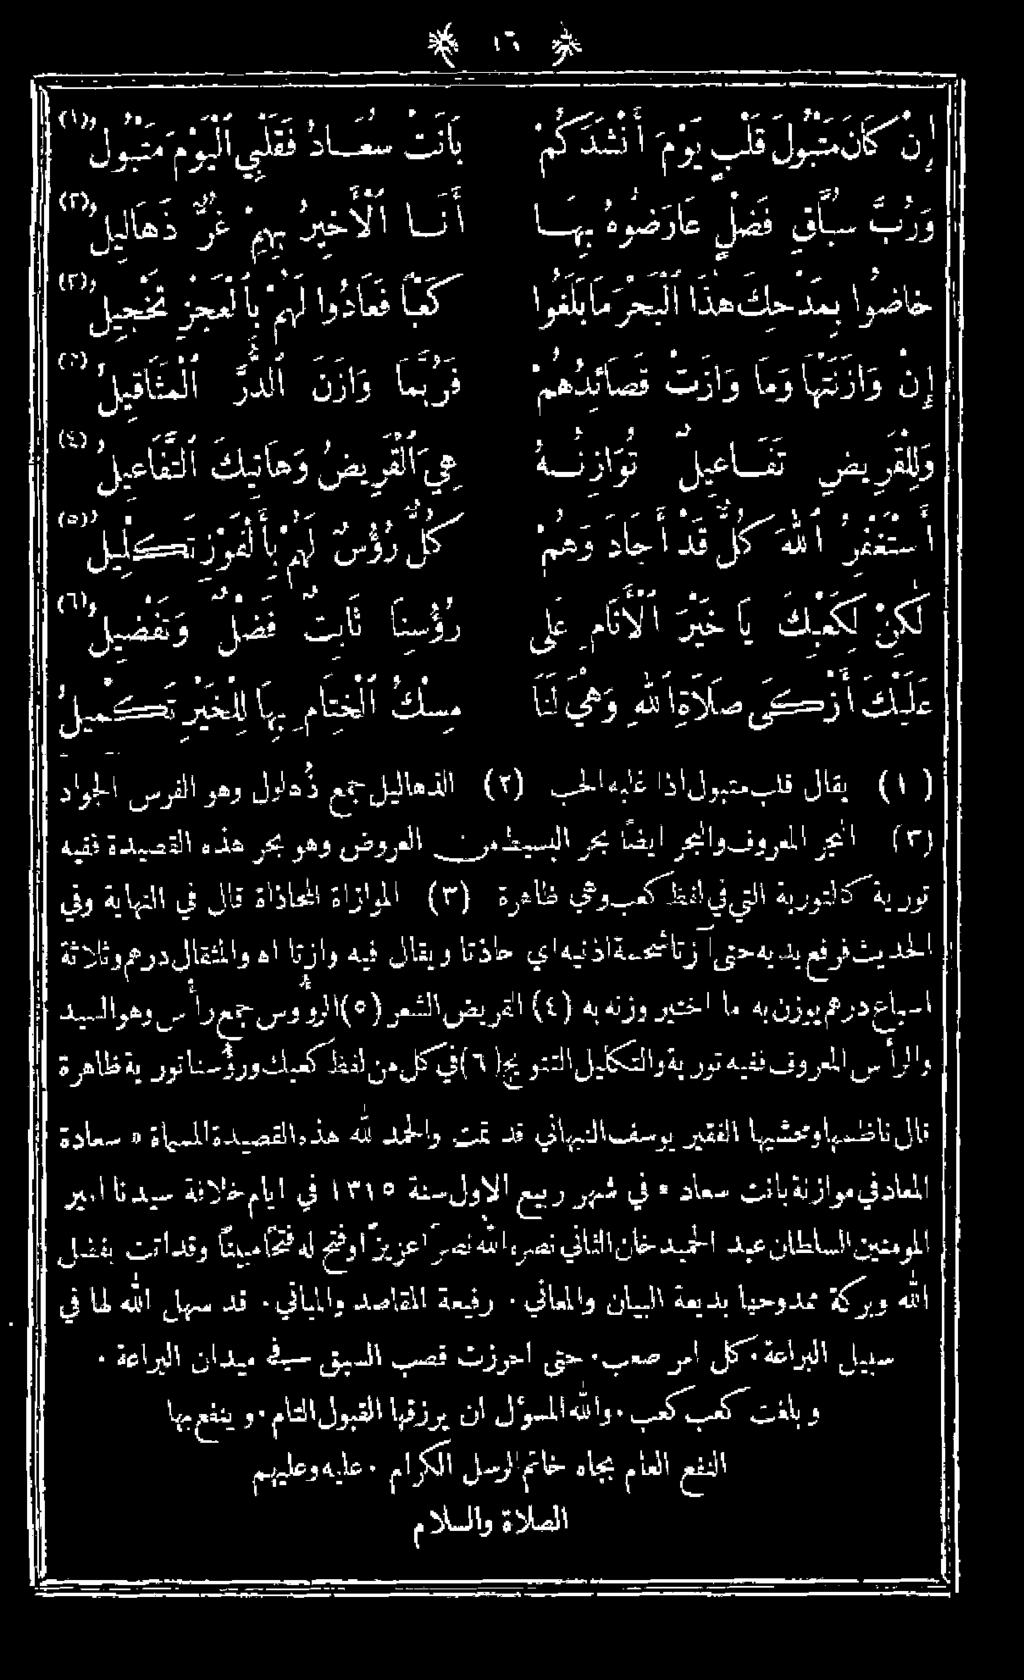 ١٦
إِنْ كَانَ مَتْبُولَ قَلْبٍ يَوْمَ أَنْشَدَكُمْ بَانَتْ سُعَادُ فَقَلْبِي ٱلْيَوْمَ مَتْبُولُ (١)
وَرُبَّ سُبَّاقِ فَضْلٍ عَارَضُوهُ بِهَا أَنَا ٱلْأَخِيرُ بِهِمْ غُرٌّ ذَهَالِيلُ (٢)
خَاضُوا بِمَدْحِكَ هٰذَا ٱلْبَحْرَ مَا بَلَغُوا كَعْبًا فَعَادُوا لَهُمْ بِٱلْعَجْزِ تَخْجِيلُ (٣)
إِنْ وَازَنَتْهَا وَمَا وَازَتْ قَصَائِدُهُمْ فَرُبَّمَا وَازَنَ ٱلدُّرَّ ٱلْمَثَاقِيلُ (٣)
وَلِلْقَرِيضِ تَفَاعِيلٌ تُوَازِنُهُ هِيَ ٱلْقَرِيضُ وَهَاتِيكَ ٱلتَّفَاعِيلُ (٤)
أَسْتَغْفِرُ ٱللهَ كُلٌّ قَدْ أَجَادَ وَهُمْ كُلٌّ رُؤُسٌ لَهُمْ بِٱلْفَوْزِ تَكْلِيلُ (٥)
لٰكِنْ لِكَعْبِكَ يَا خَيْرَ ٱلْأَنَامِ عَلَى رُؤُسِنَا ثَابِتٌ فَضْلٌ وَتَفْضِيلُ (٦)
عَلَيْكَ أَزْكَى صَلَاةِ ٱللهِ وَهْيَ لَنَا مِسْكُ ٱلْخِتَامِ بِهَا لِلْخَيْرِ تَكْمِيلُ
(١) يقال قلب متبول اذا غلبه الحب (٢) الذهاليل جمع ذُهلول وهو الفرس الجواد
(٣) البحر المعروف والبحر ايضًا بحر البسيط من العروض وهو بحر هذه القصيدة ففيه
تورية كالتورية التي في لفظ كعب وهي ظاهرة (٣) الموازاة المحاذاة قال في النهاية وفي
الحديث فرفع يديه حتى آزتا شحمة اذنيه اي حاذتا ويقال فيه وازتا اه والمثقال درهم وثلاثة
اسباع درهم يوزن به ما اختير وزنه به (٤) القريض الشعر (٥) الرؤوس جمع رأس وهو السيد
والرأس المعروف ففيه تورية والتكليل التتويج (٦) في كل من لفظ كعبك ورؤسنا تورية ظاهرة
قال ناظمها ومحشيها الفقير يوسف النبهاني قد تمت والحمد لله هذه القصيدة المسماة * سعادة
المعاد في موازنة بانت سعاد * في شهر ربيع الاول سنة ١٣١٥ في ايام خلافة سيدنا امير
المومنين السلطان عبد الحميد خان الثاني نصره الله نصرًا عزيزًا وفتح له فتحًا مبينًا وقد اتت بفضل
الله وبركة ممدوحها بديعة البيان والمعاني ٠ رفيعة المقاصد والمباني ٠ قد سهل الله لها في
سبيل البراعة ٠ كل امر صعب ٠ حتى احرزت قصب السبق في ميدان اليراعة ٠
وبلغت كعب كعب ٠ والله المسؤل ان يرزقها القبول التام ٠ وينفع بها
النفع العام بجاه خاتم الرسل الكرام ٠ عليه وعليهم
الصلاة والسلام